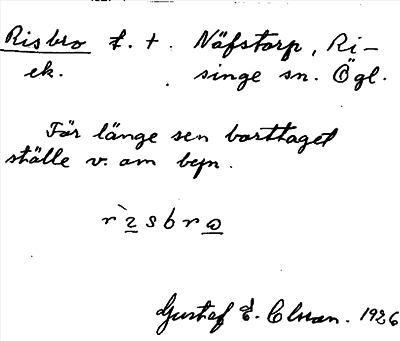 Risbro t. t. Näfstorp, Ri-
ek. singe sn. Ögl.
För länge sen borttaget
ställe v. om byn.
rısbrɷ
Gustaf E. Clsson. 1926